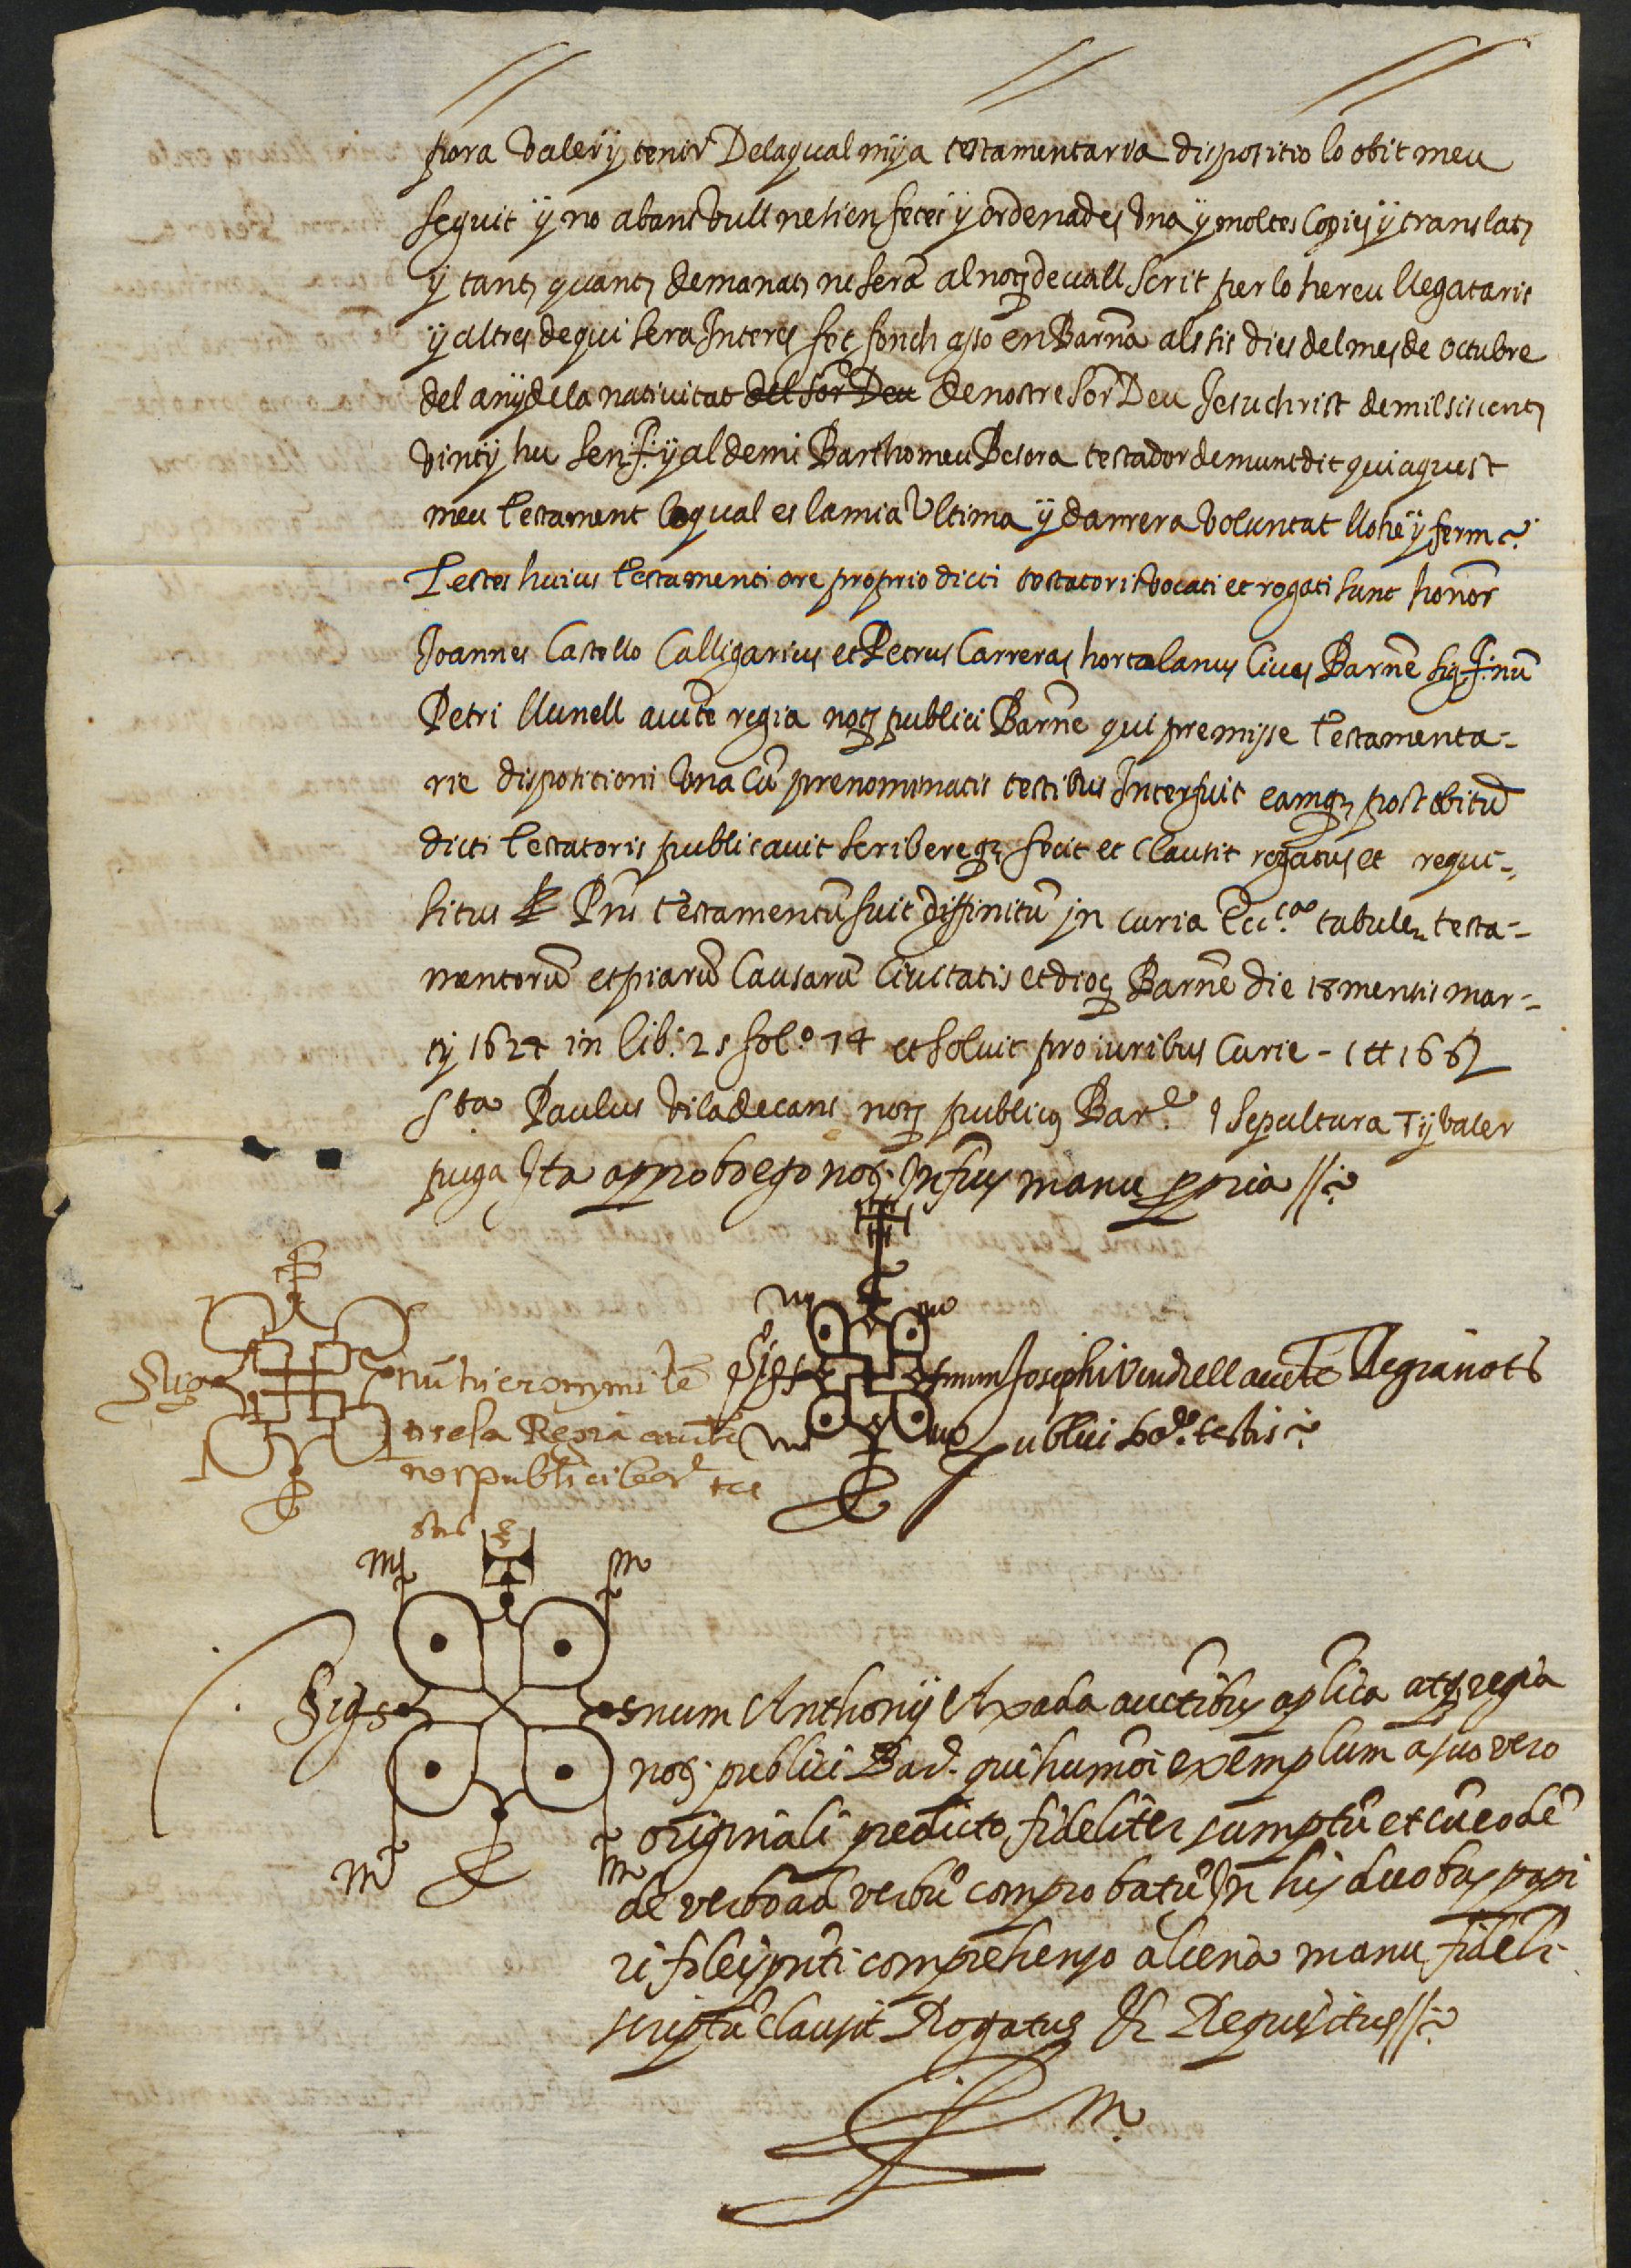 pora valer y tenir Delaqual mija testamentaria dispositio lo obit meu
seguit ÿ no abans vull ne sien fetes y ordenades Vna ÿ moltes Copies ÿ translats
ÿ tants quants demanats ne serã al noṭ devall scrit per lo hereu llegataris
ÿ altres de qui sera Interes fet fonch asso en Barna als sis dies del mes de octubre
del anÿ dela nativitat del Sor Deu de nostre Sor Deu Jesuchrist de mil siscents
vint ÿ hu Sen + ÿal de mi Barthomeu Besora testador demunt dit qui aquest
meu testament loqual es la mia Vltima ÿ darrera voluntat llohe ÿ ferm
Testes huius testamenti ore proprio dicti testatoris vocati et rogati sunt honor
Joannes Castello Calligarius et Petrus Carreras hortolanus Cives Barne sig + nũ
Petri Llunell aucte regia not publici Barne qui premisse testamenta-
rie dispositioni Vna Cũ prenominatis testibus Interfuit eamq post obitũ
dicti testatoris publicavit scribereq fecit et clausit rogatus et requi-
situs Pns testamentũ fuit diffinitũ in curia Ecc.ca tabule testa-
mentorũ et piarũ Causarũ Civitatis et dioc Barne die 18 mensis mar-
tÿ 1627 in lib: 2 s fol.o 74 et solvit pro iuribus Curie - 1 tt 16 s
Paulus Viladecans not publicus Bar sepultura valer
puga Ita approbo ego not. Infrus manu ppria //
Sig nũ hieronymi
Regia aucte
not publici bar tes
Sig+num Josephi Vendrell aucte Regia not
publici bar. testis
Sig+num Anthonÿ Axada auctibus aplica atq regia
not. publici Bar. qui humoi exemplum a suo vero
originali predicto fideliter sumptũ et cũ eodẽ
de verbo ad verbũ comprobatũ In his duobus papi
ri foleis pnti comprehenso aliena manu fideli-
scriptũ clausit Rogatus Et Requisitus //